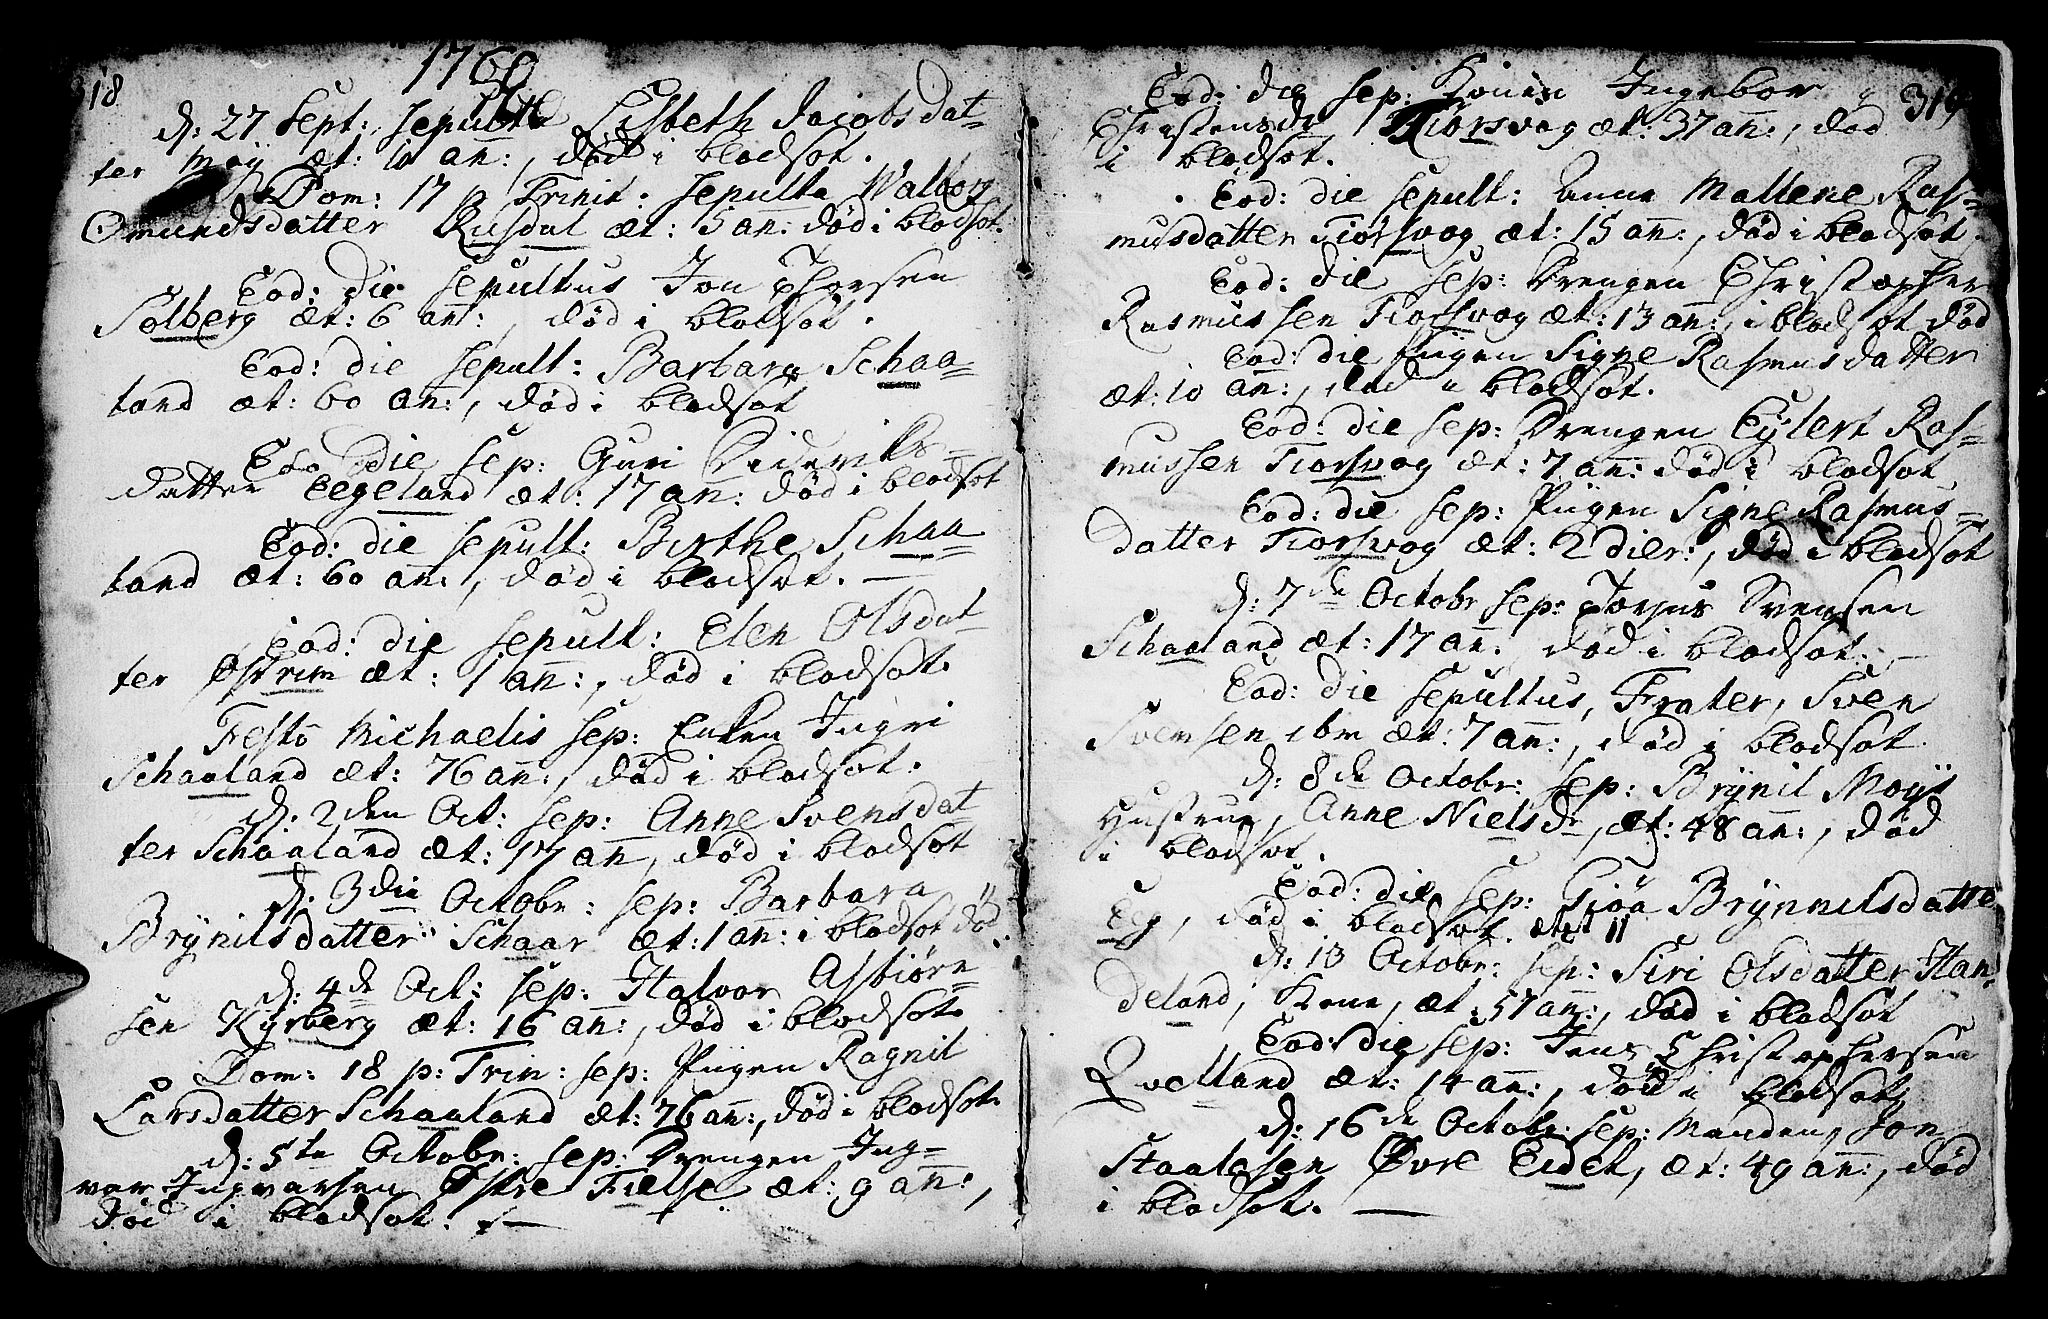 318
1760
d: 27 Sept: sepulte Lisbeth Jacobsdat-
ter Moÿ æt: 10 añ:, død i blodsot.
Dom: 17 p Trinit. sepulta Walborg
Omundsdatter Rusdal æt: 5 añ: død i blodsot.
Eod: die sepultus Jon Thorsen
Solberg æt: 6 añ:, død i blodsot.
Eod: die sepult: Barbara Schaa-
land æt: 60 añ:, død i blodsot
Eod die sep: Guri Dideriks-
datter Eegeland æt: 17 añ: død i blodsot
Eod: die sepult: Birthe Schaa-
land æt: 60 añ:, død i blodsot. —
Eod: die sepult: Elen Olsdat-
ter Østrem æt: 1 añ:, død i blodsot.
Festo Michaelis sep: Enken Ingri
Schaaland æt: 76 añ:, død i blodsot.
d: 2den Oct: sep: Anne Svensdat-
ter Schaaland æt: 17 añ, død i blodsot
d: 3die Octobr: sep: Barbara
Brÿnilsdatter Schaar æt: 1 añ: i blodsot død.
d: 4de Oct: sep: Halvor Asbiørn-
sen Kÿrberg æt: 16 añ:, død i blodsot.
Dom: 18 p: Trin: sep: Pigen Ragnil
Larsdatter Schaaland æt: 76 añ:, død i blodsot.
d: 5te Octobr: sep: Drengen Ing-
var Ingvarsen Østre Fielse æt: 9 añ:,
død i blodsot. —
319
Eod: die sep: Konen Ingebor
Christensdr Tiorsvog æt: 37 añ:, død
i blodsot.
Eod: die sepult: Anna Mallene Ras-
musdatter Tiørsvog æt: 15 añ:, død i blodsot.
Eod: die sep: Drengen Christopher
Rasmussen Tiorsvog æt: 13 añ:, i blodsot død
Eod: die Pigen Signe Rasmusdatter
æt: 10 añ:, død i blodsot.
Eod: die sep: Drengen Eÿlert Ras-
mussen Tiorsvog æt: 7 añ: død i blodsot
Eod: die sep: Pigen Signe Rasmus-
datter Tiorsvog æt: 2 dier:, død i blodsot
d: 7de Octobr sep: Torjus Svensen
Schaaland æt: 17 añ: død i blodsot. —
Eod: die sepultus, Frater, Sven
Svensen ibm æt: 7 añ:, død i blodsot.
d: 8de Octobr: sep: Brÿnil Moÿs
Hustrue, Anne Nielsdr, æt: 48 añ:, død
i blodsot.
Eod: die sep: Tiøa Brÿnnilsdatte
Eeg, død i blodsot. ætat 11
d: 13 Octobr: sep: Siri Olsdatter Han-
deland, Kone, æt: 57 añ:, død i blodsot
Eod: die sep: Jens Christophersen
Qvelland æt: 14 añ:, død i blodsot,
d: 16de Octobr: sep: Manden, Jon
Staalesen Øvre Eidet, æt: 49 añ:, død
i blodsot. —